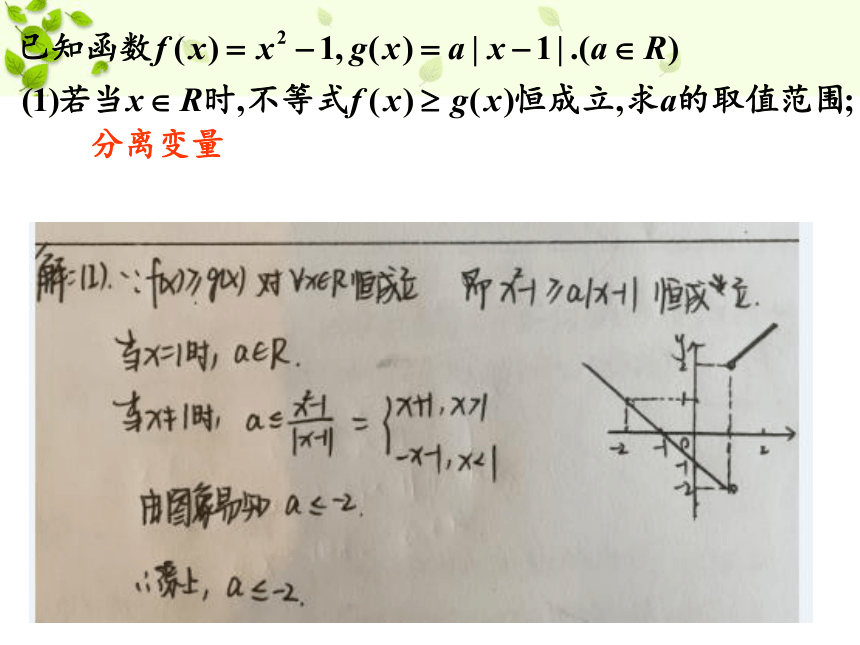 已知函数f(x)=x²−1,g(x)=a|x−1|.(a∈R)
(1)若当x∈R时,不等式f(x)≥g(x)恒成立,求a的取值范围;
分离变量
解:(1).∵f(x)≥g(x) 对∀x∈R恒成立 即 x²-1≥a|x-1| 恒成立.
当x=1时, a∈R.
当x≠1时, a≤(x²-1)/|x-1| = { x+1, x>1
-x-1, x<1
由图象易知 a≤-2.
∴综上, a≤-2.
y
2
1
-2 -1 0 2
-1
-2